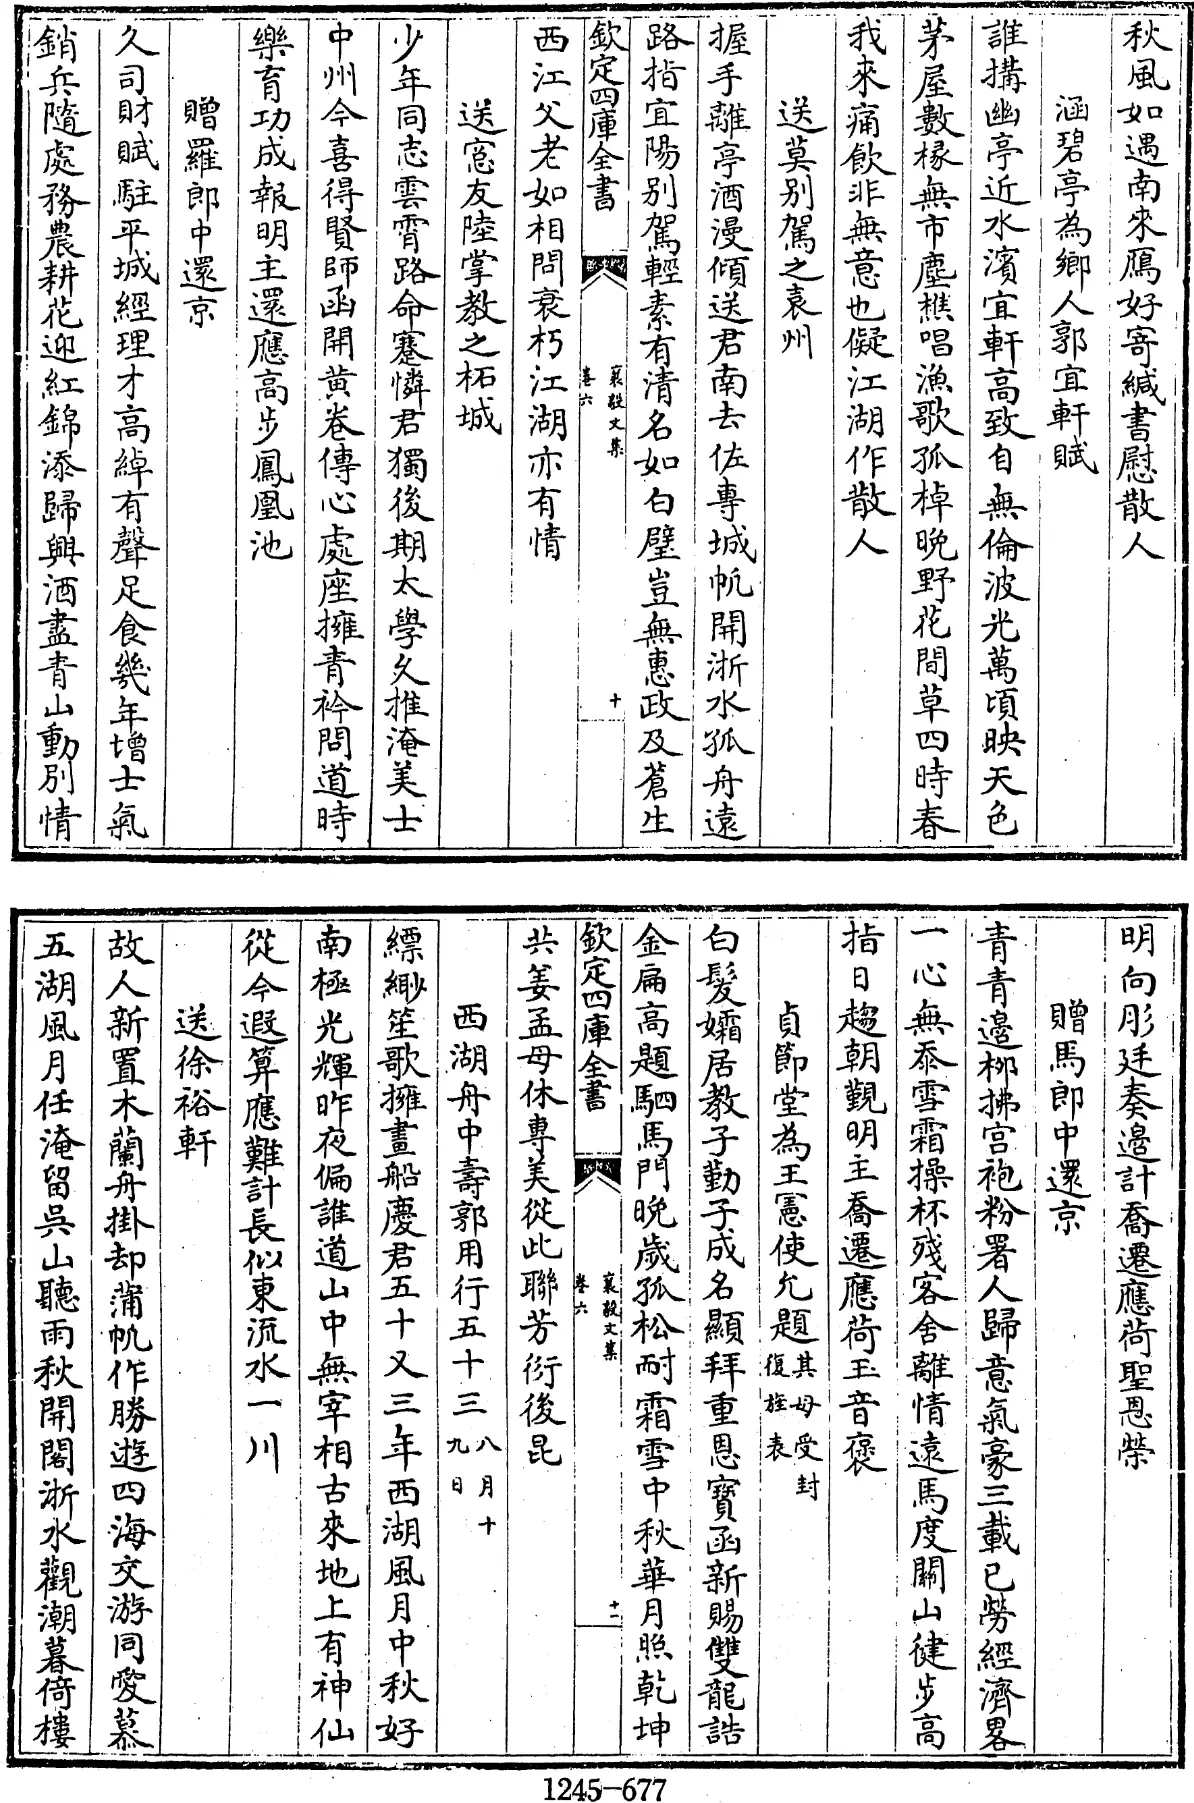 秋風如遇南來鴈好寄緘書慰散人
涵碧亭為鄉人郭宜軒賦
誰搆幽亭近水濱宜軒高致自無倫波光萬頃映天色
茅屋數椽無市塵樵唱漁歌孤棹晚野花間草四時春
我來痛飲非無意也儗江湖作散人
送莫别駕之袁州
握手離亭酒漫傾送君南去佐專城帆開浙水孤舟遠
路指宜陽别駕輕素有清名如白璧豈無惠政及蒼生
欽定四庫全書
襄毅文集
卷六
十
西江父老如相問衰朽江湖亦有情
送窓友陸掌教之柘城
少年同志雲霄路命蹇憐君獨後期太學久推淹美士
中州今喜得賢師函開黄卷傳心處座擁青衿問道時
樂育功成報明主還應高步鳳凰池
贈羅郎中還京
久司財賦駐平城經理才高綽有聲足食幾年增士氣
銷兵隨處務農耕花迎紅錦添歸興酒盡青山動别情
明向彤廷奏邊計喬遷應荷聖恩榮
贈馬郎中還京
青青邊栁拂宫袍粉署人歸意氣豪三載已勞經濟畧
一心無忝雪霜操杯殘客舍離情遠馬度關山健步高
指日趨朝覲明主喬遷應荷玉音褒
貞節堂為王憲使允題其母受封復旌表
白髮孀居教子勤子成名顯拜重恩寳函新賜雙龍誥
金扁高題駟馬門晚歲孤松耐霜雪中秋華月照乾坤
欽定四庫全書
襄毅文集
卷六
十一
共姜孟母休專美從此聯芳衍後昆
西湖舟中壽郭用行五十三八月十九日
縹緲笙歌擁畫船慶君五十又三年西湖風月中秋好
南極光輝昨夜偏誰道山中無宰相古來地上有神仙
從今遐算應難計長似東流水一川
送徐裕軒
故人新置木蘭舟掛却蒲帆作勝遊四海交游同愛慕
五湖風月任淹留吳山聽雨秋開閣浙水觀潮暮倚樓
1245-677